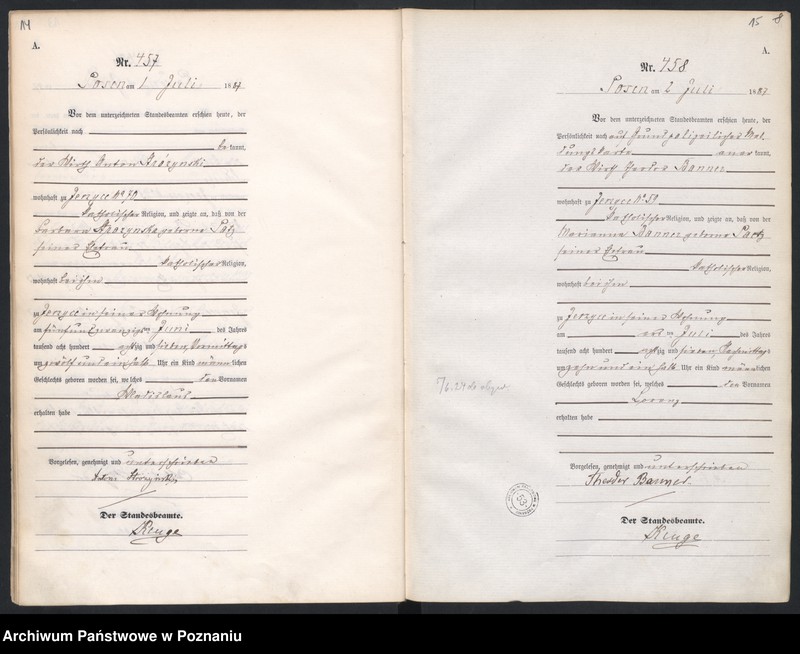 14
A.
Nr. 457
Posen am 1 Juli 1887
Vor dem unterzeichneten Standesbeamten erschien heute, der
Persönlichkeit nach
be kannt,
der Wirth Anton
wohnhaft zu Jerzyce No 70
katholischer Religion, und zeigte an, daß von der
Barbara geborne
seiner Ehefrau
katholischer Religion,
wohnhaft bei ihm
zu Jerzyce in seiner Wohnung
am fünfundzwanzigsten Juni des Jahres
tausend acht hundert achtzig und sieben, Vormittags
um zwölf und einhalb Uhr ein Kind männlichen
Geschlechts geboren worden sei, welches den Vornamen
Wladislaus
erhalten habe
Vorgelesen, genehmigt und unterschrieben
Der Standesbeamte.
15 8
A.
Nr. 458
Posen am 2 Juli 1887
Vor dem unterzeichneten Standesbeamten erschien heute, der
Persönlichkeit nach auf Grund polizeilicher Mel-
dungskarte aner kannt,
der Wirth Banner
wohnhaft zu Jerzyce No 59
katholischer Religion, und zeigte an, daß von der
Marianna Banner geborne
seiner Ehefrau
katholischer Religion,
wohnhaft bei ihm
zu Jerzyce in seiner Wohnung
am ersten Juli des Jahres
tausend acht hundert achtzig und sieben, Nachmittags
um zehn und ein halb Uhr ein Kind männlichen
Geschlechts geboren worden sei, welches den Vornamen
Lorenz
erhalten habe
Vorgelesen, genehmigt und unterschrieben
Theodor Banner
Der Standesbeamte.
53
Archiwum Państwowe w Poznaniu